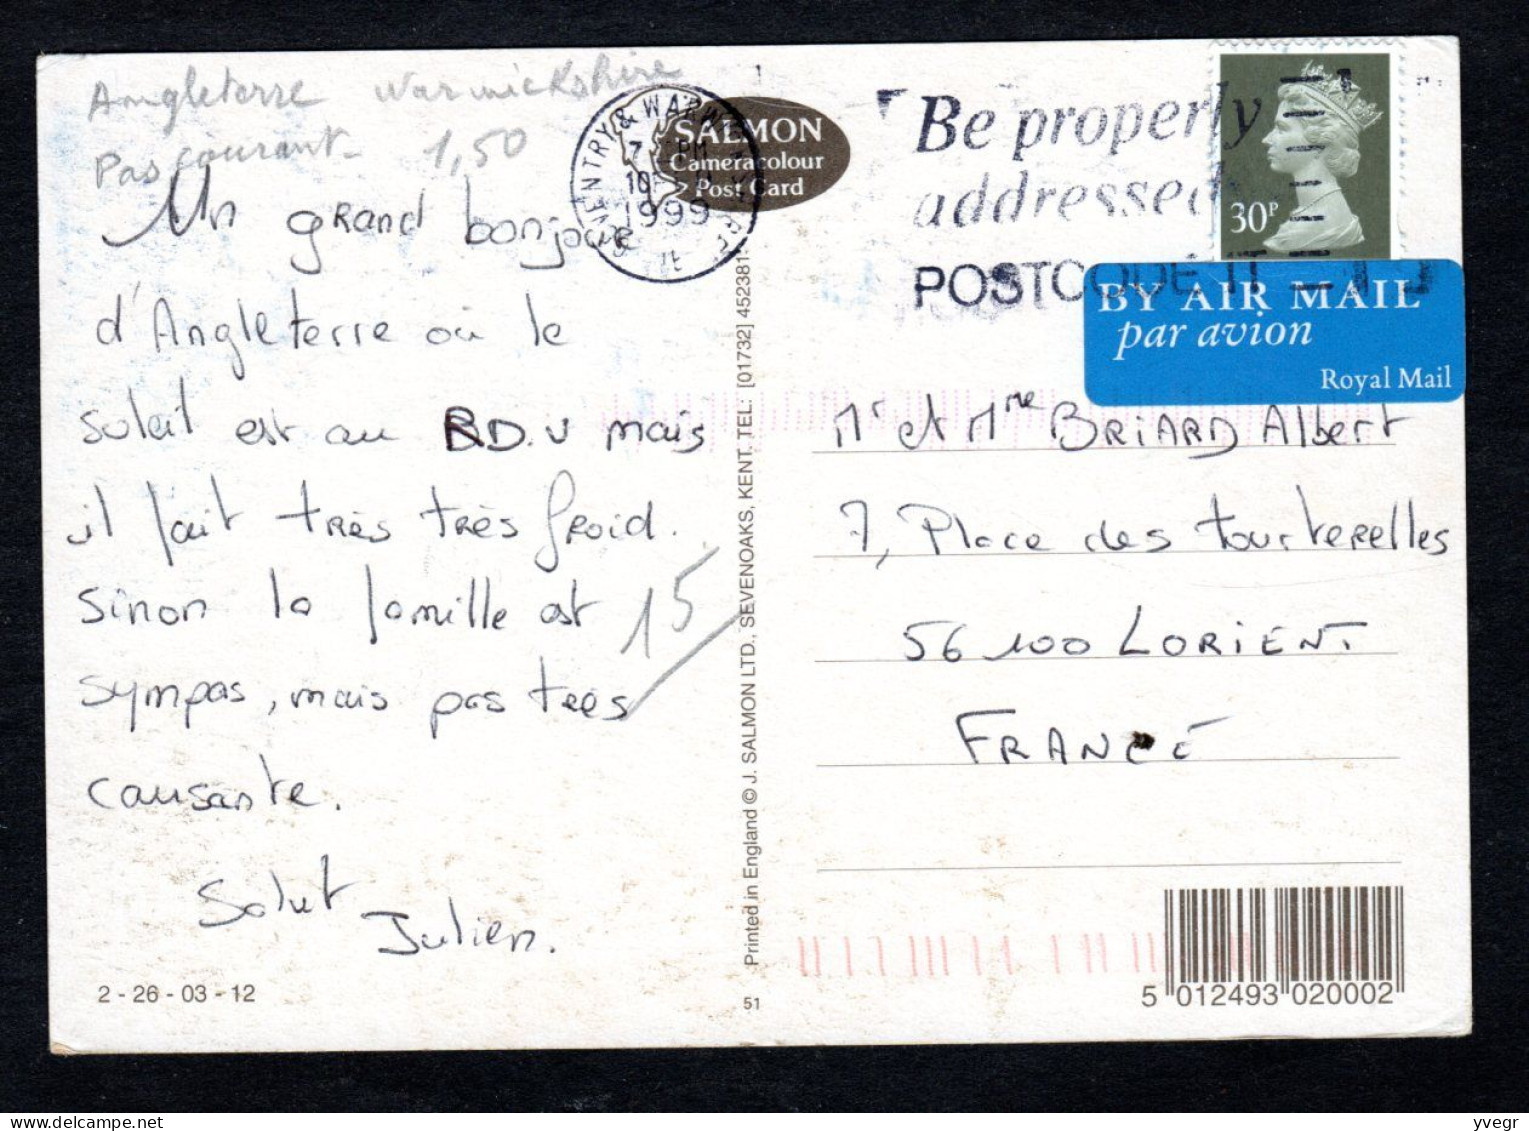 Angleterre Warwickshire
Pas courant - 1,50
Un grand bonjour
d'Angleterre où le
soleil est au RD.V mais
il fait très très froid.
Sinon la famille est
sympas, mais pas très
causante.
Salut
Julien.
15
2 - 26 - 03 - 12
COVENTRY & WARWICKSHIRE
1999
SALMON
Cameracolour
Post Card
Be properly
addressed
POSTCODE IT
30P
BY AIR MAIL
par avion
Royal Mail
Printed in England © J. SALMON LTD., SEVENOAKS, KENT. TEL: [01732] 452381.
51
Mr et Mme BRIARD Albert
7, Place des tourterelles
56 100 LORIENT
FRANCE
5 012493 020002
yvegr